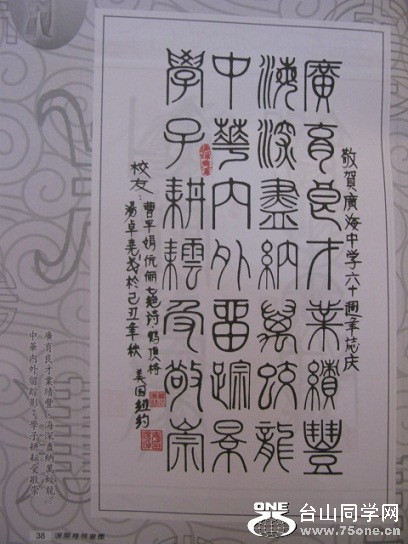 敬賀廣海中学六十週年誌庆
廣育良才業績豐
海深盡納萬蛟龍
中華内外畱踪景
學子耕耘受敬崇
校友：
曹平娟伉俪七绝诗鹤顶格
湯卓堯 於己丑年秋
美国纽约
廣育良才業績豐，海深盡納萬蛟龍。
中華内外留踪影，學子耕耘受敬崇。
38
ONE
台山同学网
www.75one.cn